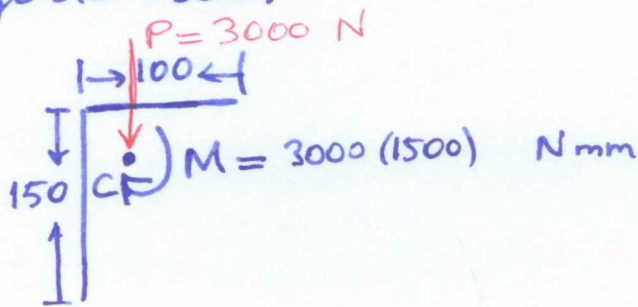 P = 3000 N
100
150
C
M = 3000 (1500) N mm